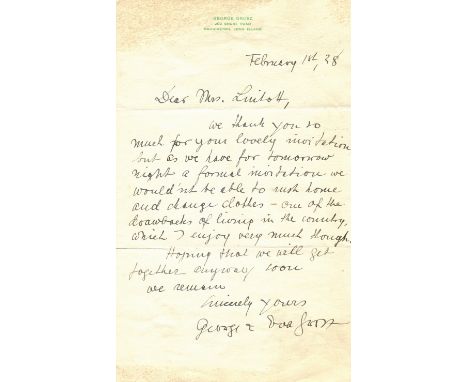 GEORGE GROSZ
February 1st, 38
Dear Mrs. Lintott,
we thank you so
much for your lovely invitation
but as we have for tomorrow
night a formal invitation we
would'nt be able to rush home
and change clothes – one of the
drawbacks of living in the country,
which I enjoy very much though.
Hoping that we will get
together anyway soon
we remain
Sincerely yours
George & Eva Grosz